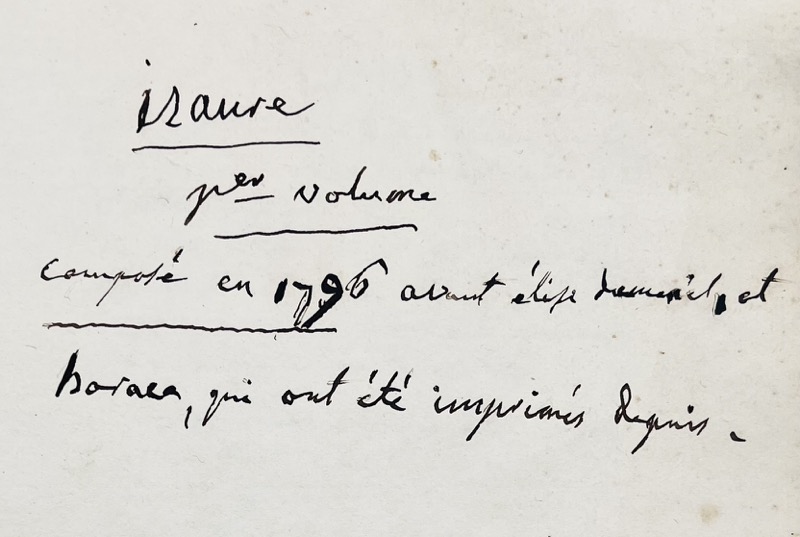 izaure
1er volume
composé en 1796 avant élise dumesnil, et
horace, qui ont été imprimés depuis.